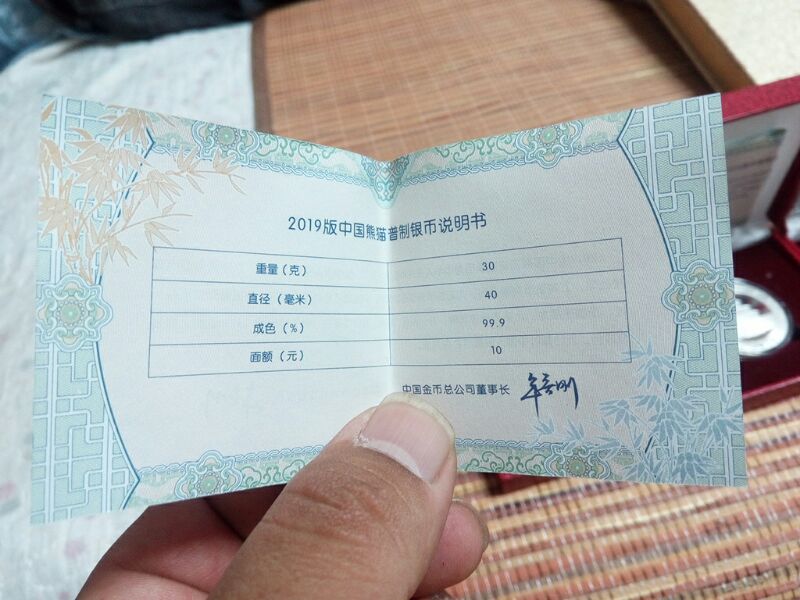 2019版中国熊猫普制银币说明书
重量(克) 30
直径(毫米) 40
成色(%) 99.9
面额(元) 10
中国金币总公司董事长